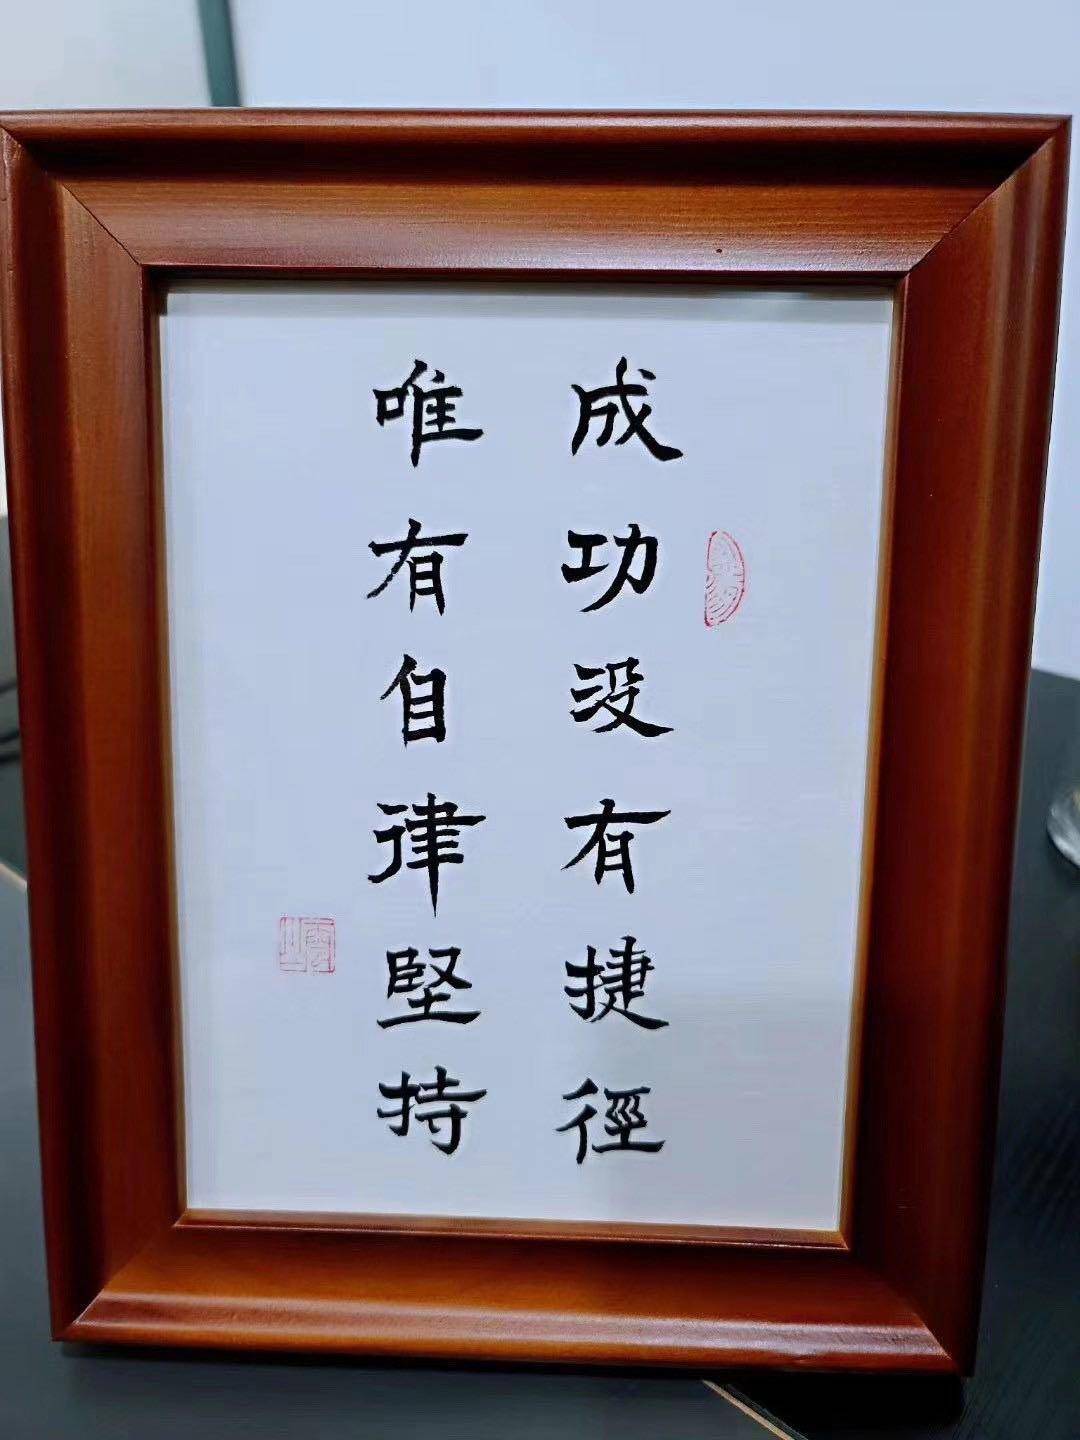 成功没有捷徑
唯有自律堅持